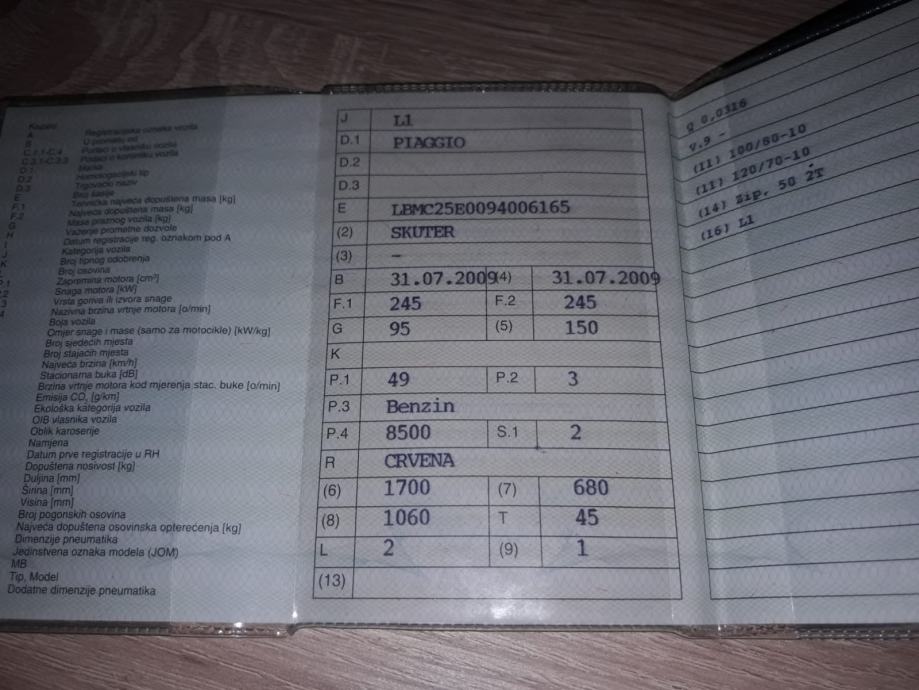 Kazalo:
A Registracijska oznaka vozila
B U prometu od
C.1.1-C.4 Podaci o vlasniku vozila
C.3.1-C.3.3 Podaci o korisniku vozila
D.1 Marka
D.2 Homologacijski tip
D.3 Trgovački naziv
E Broj šasije
F.1 Tehnička najveća dopuštena masa [kg]
F.2 Najveća dopuštena masa [kg]
G Masa praznog vozila [kg]
H Važenje prometne dozvole
I Datum registracije reg. oznakom pod A
J Kategorija vozila
K Broj tipnog odobrenja
L Broj osovina
P.1 Zapremina motora [cm³]
P.2 Snaga motora [kW]
P.3 Vrsta goriva ili izvora snage
P.4 Nazivna brzina vrtnje motora [o/min]
Boja vozila
Omjer snage i mase (samo za motocikle) [kW/kg]
Broj sjedećih mjesta
Broj stajaćih mjesta
Najveća brzina [km/h]
Stacionarna buka [dB]
Brzina vrtnje motora kod mjerenja stac. buke [o/min]
Emisija CO₂ [g/km]
Ekološka kategorija vozila
OIB vlasnika vozila
Oblik karoserije
Namjena
Datum prve registracije u RH
Dopuštena nosivost [kg]
Duljina [mm]
Širina [mm]
Visina [mm]
Broj pogonskih osovina
Najveća dopuštena osovinska opterećenja [kg]
Dimenzije pneumatika
Jedinstvena oznaka modela (JOM)
MB
Tip, Model
Dodatne dimenzije pneumatika
J L1
D.1 PIAGGIO
D.2
D.3
E LBMC25E0094006165
(2) SKUTER
(3) –
B 31.07.2009 (4) 31.07.2009
F.1 245 F.2 245
G 95 (5) 150
K
P.1 49 P.2 3
P.3 Benzin
P.4 8500 S.1 2
R CRVENA
(6) 1700 (7) 680
(8) 1060 T 45
L 2 (9) 1
(13)
Q 0,0316
V.9 -
(11) 100/80-10
(11) 120/70-10
(14) Zip, 50 2T
(16) L1